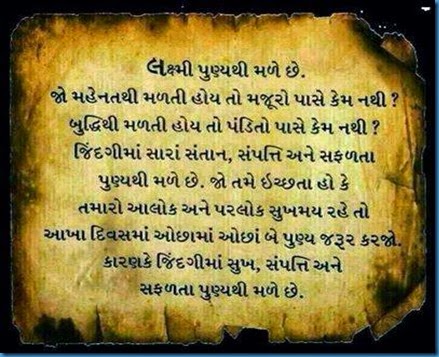 લક્ષ્મી પુણ્યથી મળે છે.
જો મહેનતથી મળતી હોય તો મજૂરો પાસે કેમ નથી ?
બુદ્ધિથી મળતી હોય તો પંડિતો પાસે કેમ નથી ?
જિંદગીમાં સારાં સંતાન, સંપત્તિ અને સફળતા
પુણ્યથી મળે છે. જો તમે ઇચ્છતા હો કે
તમારો આલોક અને પરલોક સુખમય રહે તો
આખા દિવસમાં ઓછામાં ઓછાં બે પુણ્ય જરૂર કરજો.
કારણકે જિંદગીમાં સુખ, સંપત્તિ અને
સફળતા પુણ્યથી મળે છે.